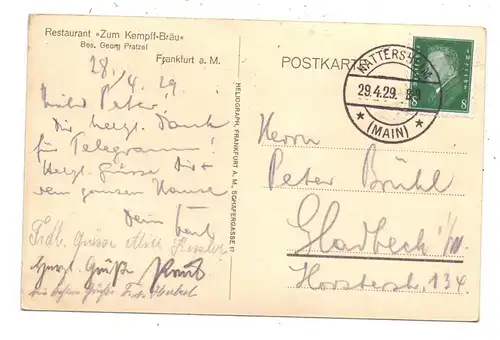 Restaurant »Zum Kempff-Bräu«
Bes. Georg Pratzel
Frankfurt a. M.
28/4 29
Peter!
Dir herzl. Dank
für Telegramm!
Herzl. Grüsse Dir +
dem ganzen Hause
Dein
Frdl. Grüsse
Herzl. Grüße
HELIOGRAPH, FRANKFURT A. M., SCHÄFERGASSE 17
POSTKARTE
HATTERSHEIM
29.4.29.
(MAIN)
8 8
Herrn
Peter Brühl
Gladbeck i/W.
Horsterstr. 134.